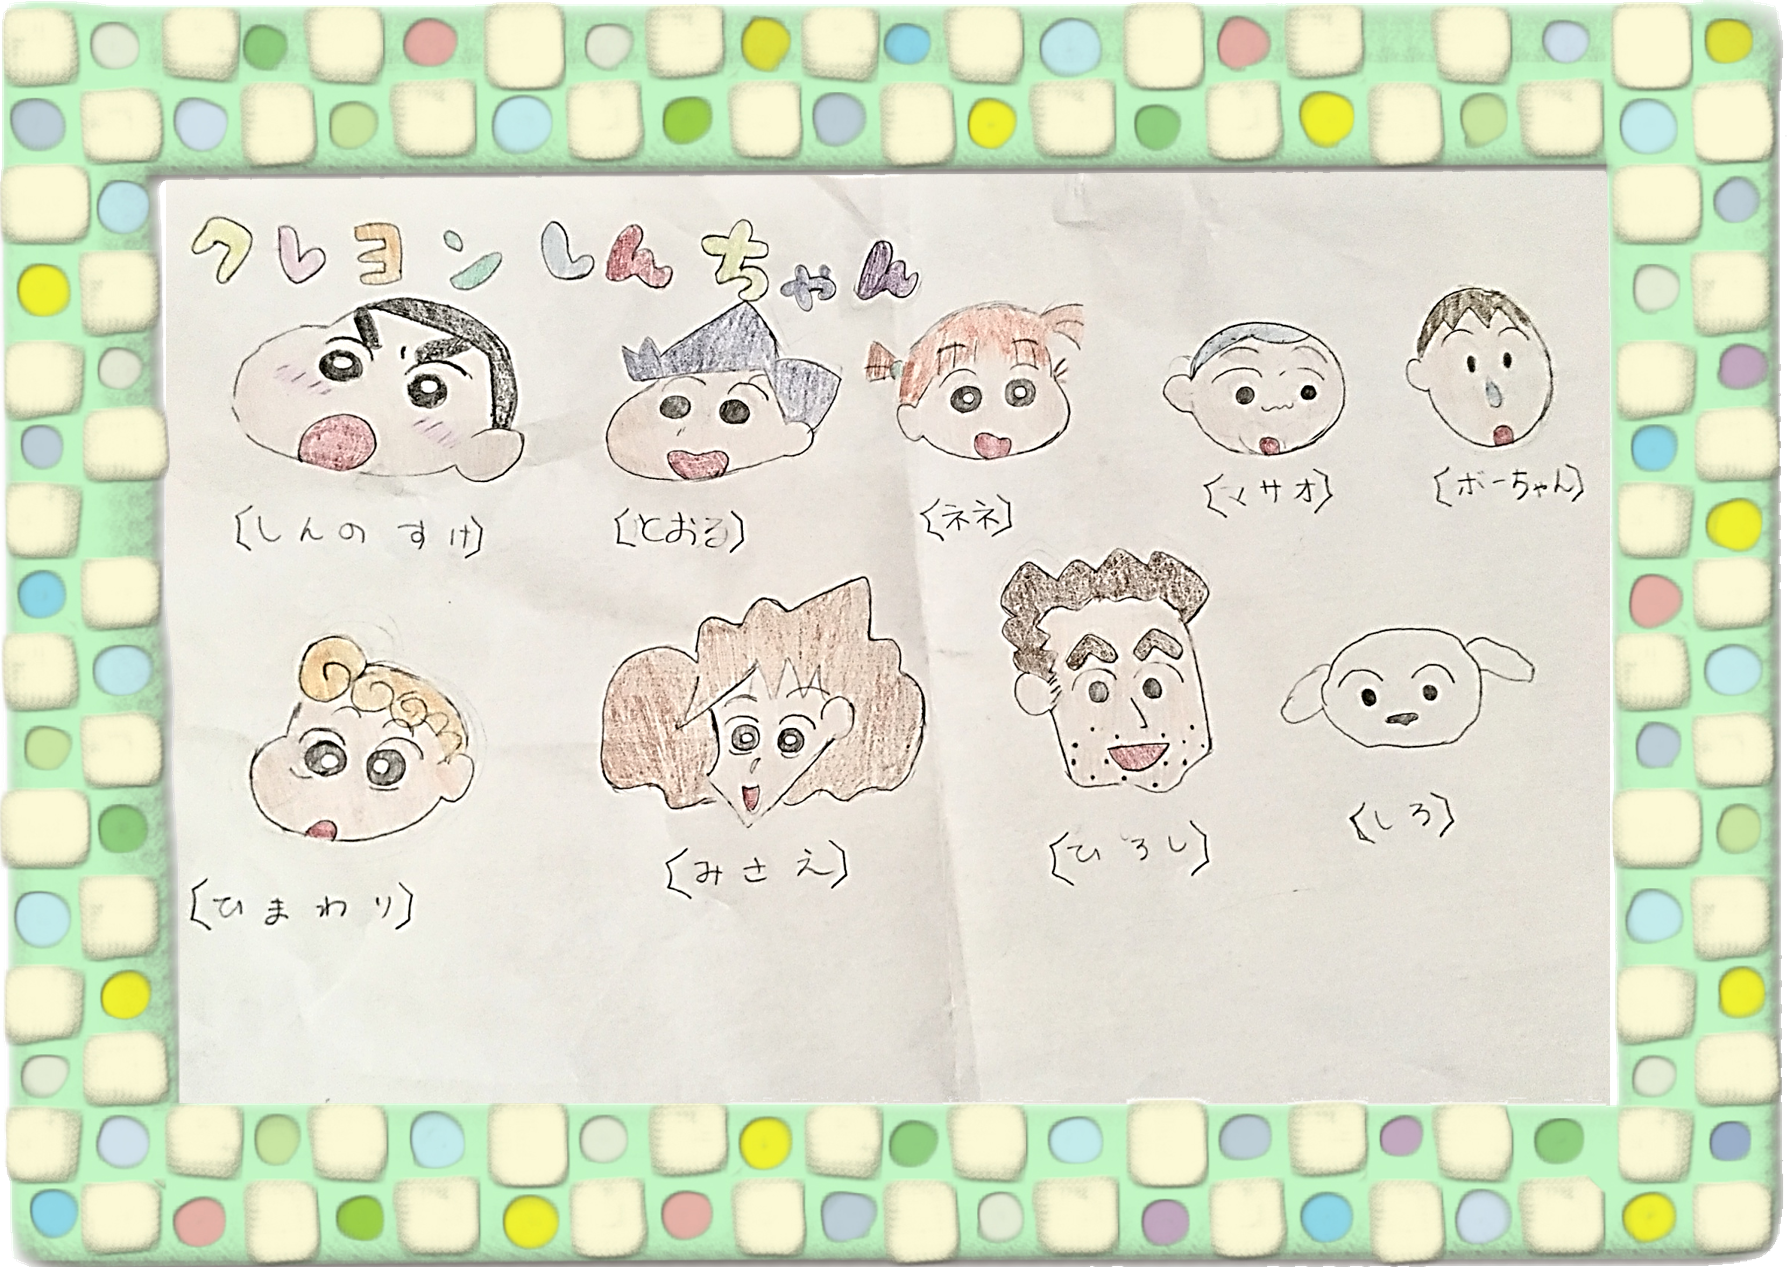 クレヨンしんちゃん
〔しんのすけ〕
〔とおる〕
〔ネネ〕
〔マサオ〕
〔ボーちゃん〕
〔ひまわり〕
〔みさえ〕
〔ひろし〕
〔しろ〕